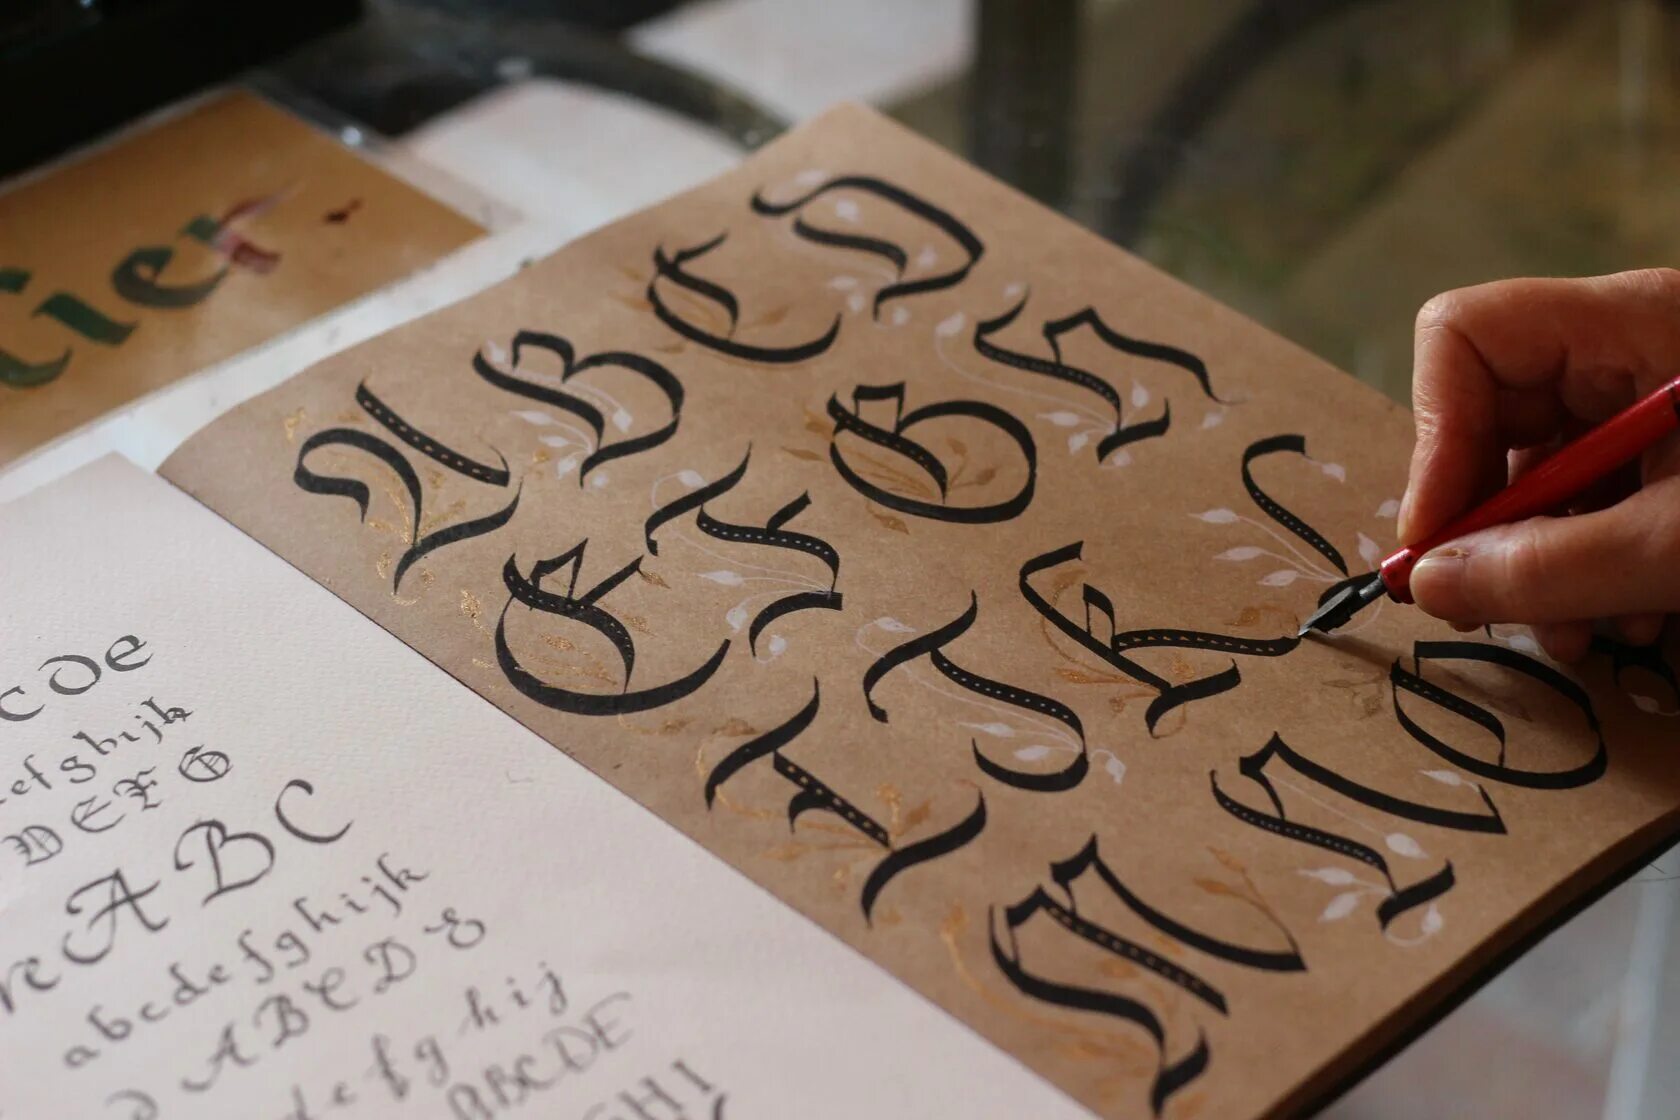 ier.
A B C D
E F G H
I J K L
M N O
C D e
efghijk
D E F G
re A B C
abcdefghijk
A B C D E
d e f g h i j
ABCDE
GHI